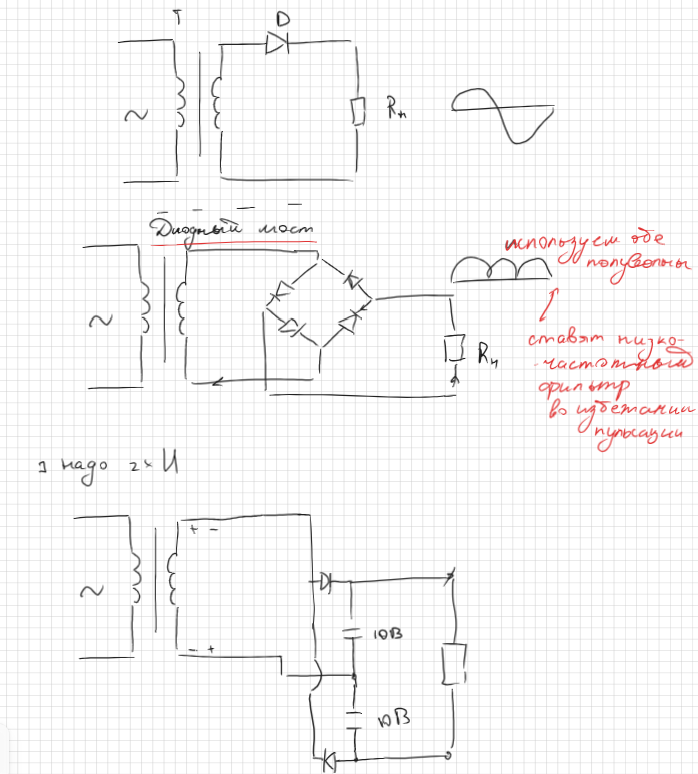 T D
~ Rн
Диодный мост
используем обе
полуволны
~ Rн
ставят низко-
-частотный
фильтр
во избежании
пульсации
надо 2×U
+ -
~
10В
- +
10В